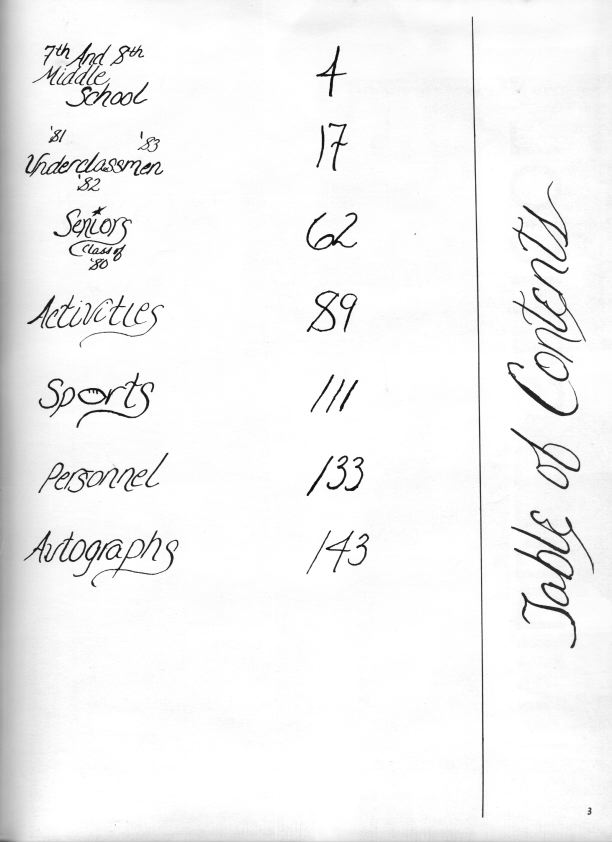 7th And 8th
Middle
School
4
'81 '83
Underclassmen
'82
17
Seniors
Class of
'80
62
Activities
89
Sports
111
Personnel
133
Autographs
143
Table of Contents
3